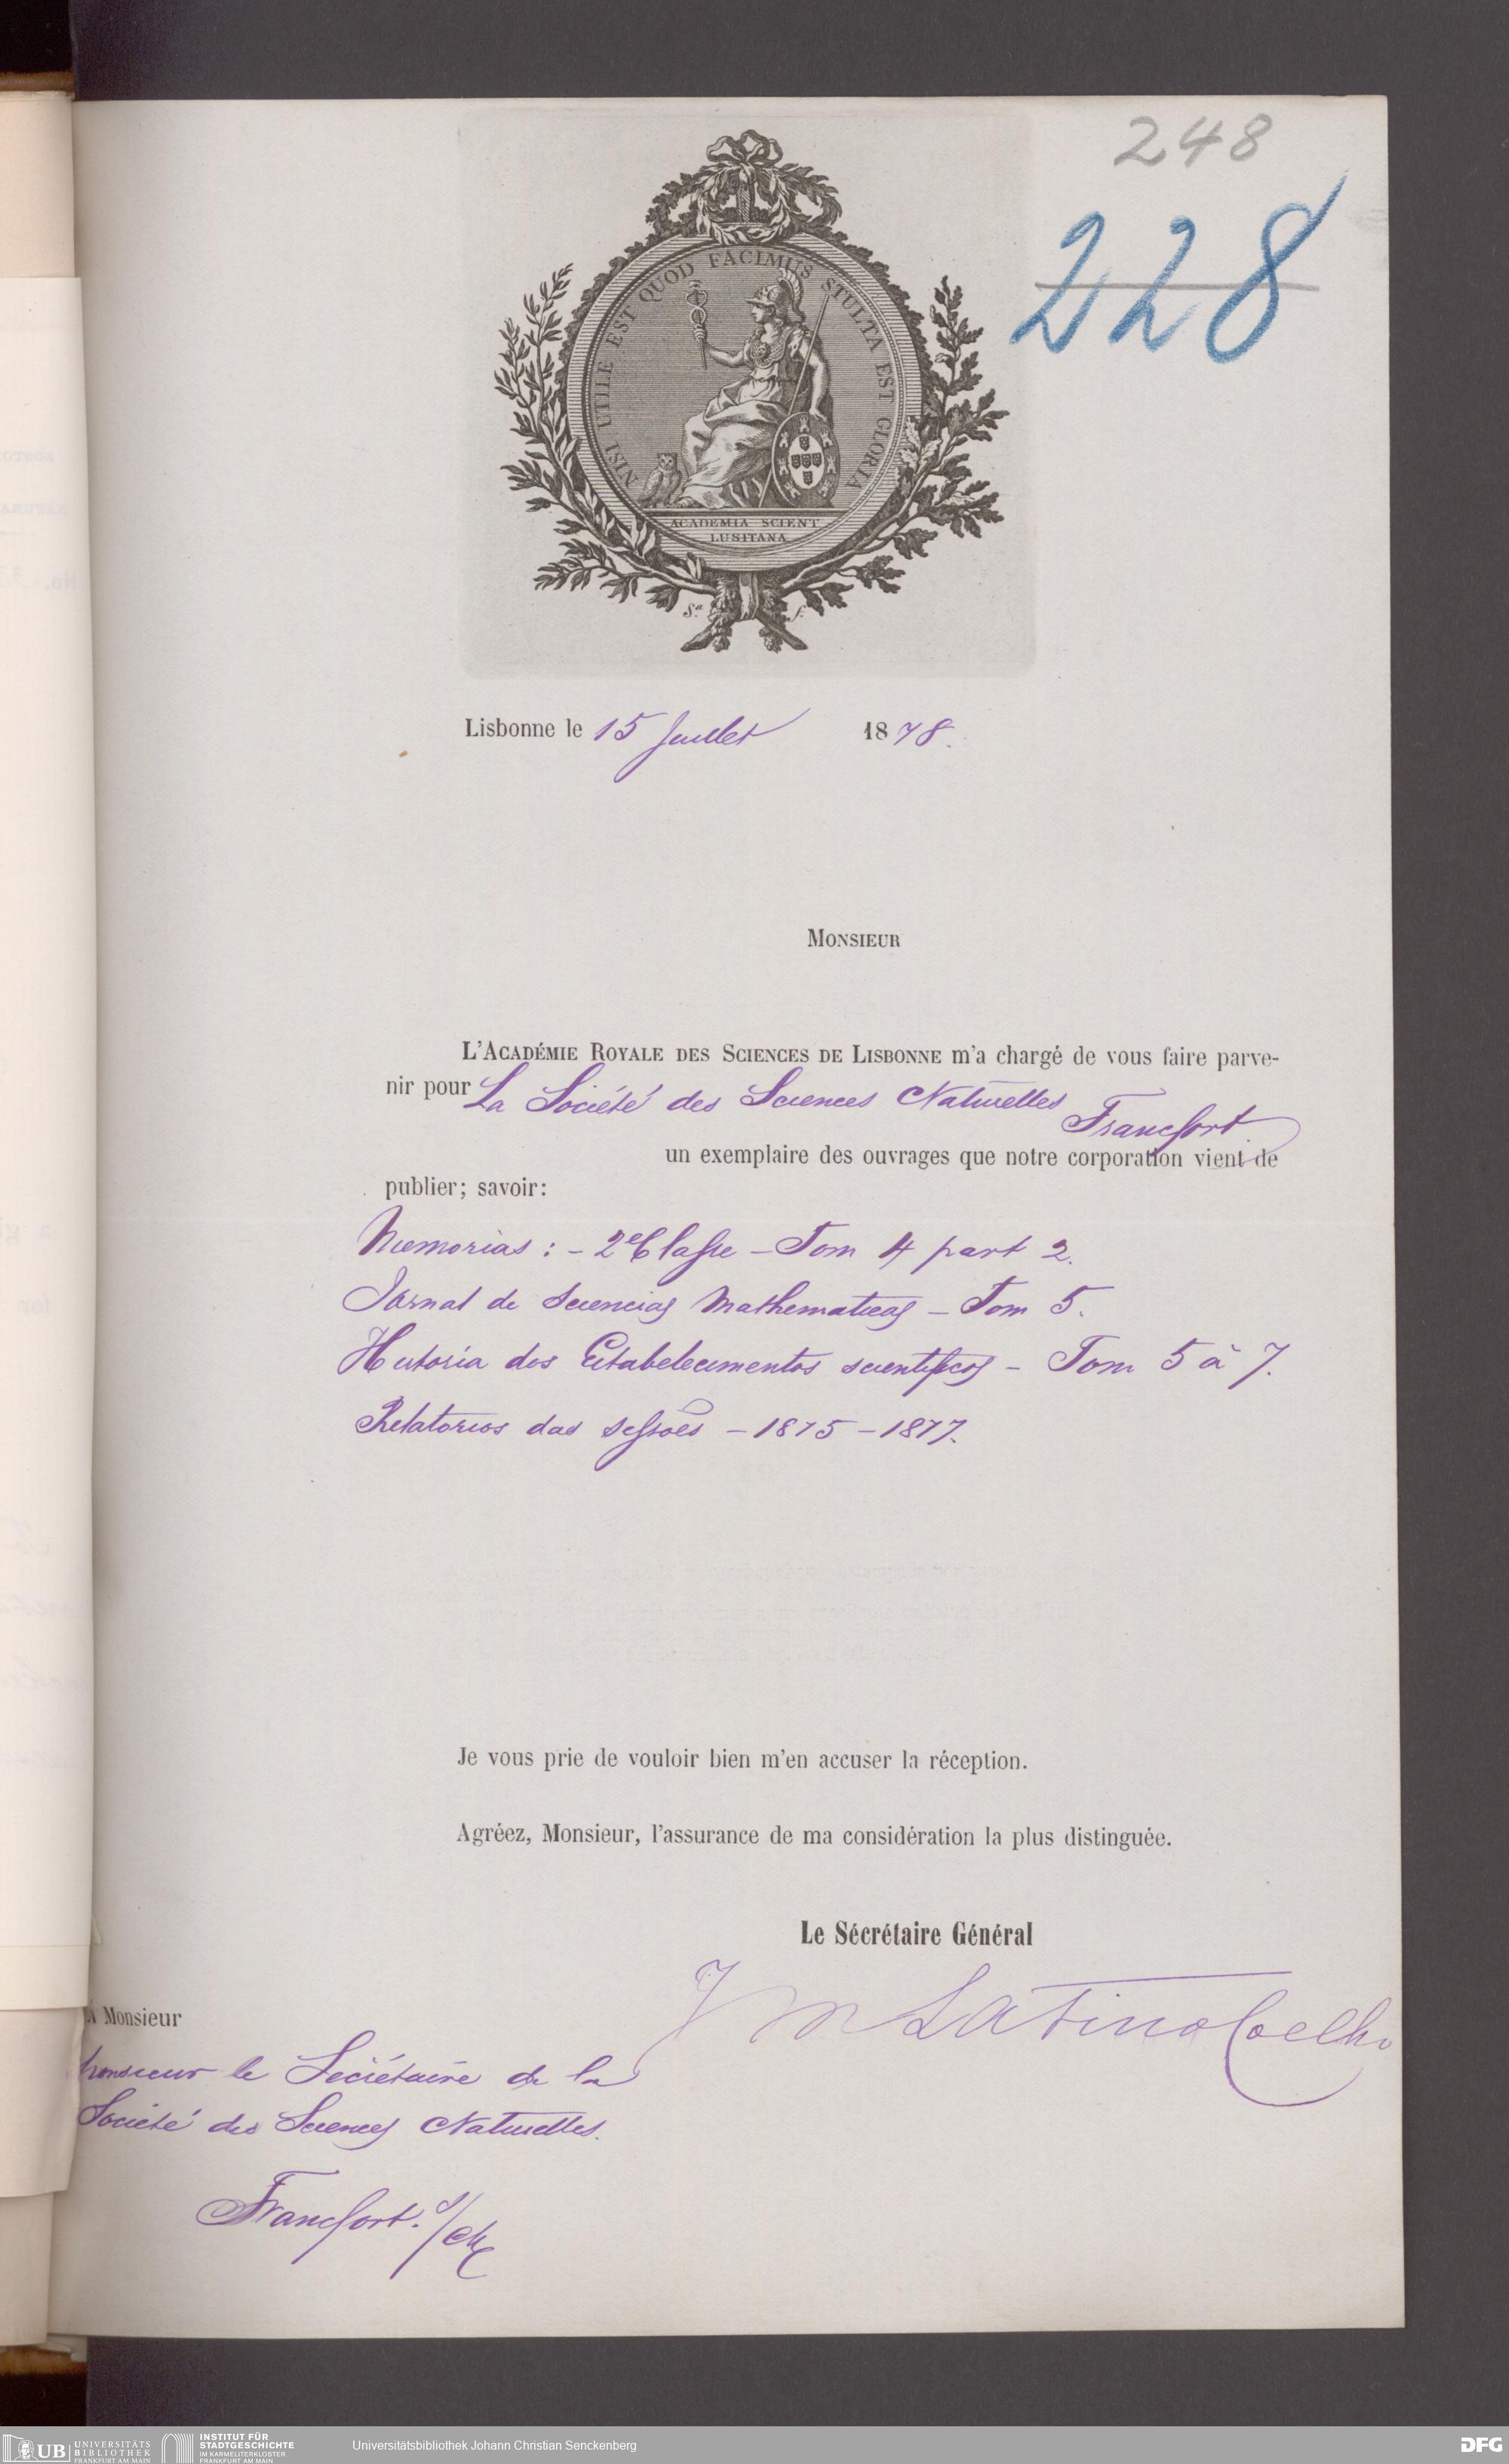 248
228
NISI UTILE EST QUOD FACIMUS STULTA EST GLORIA
ACADEMIA SCIENT
LUSITANA
Sa f.
Lisbonne le 15 Juillet 1878.
MONSIEUR
L'ACADÉMIE ROYALE DES SCIENCES DE LISBONNE m'a chargé de vous faire parve-
nir pour La Société des Sciences Naturelles Francfort.
un exemplaire des ouvrages que notre corporation vient de
publier; savoir:
Memorias : - 2e Classe - Tom 4 part 2.
Jornal de Sciencias Mathematicas - Tom 5.
Historia dos Estabelecimentos scientificos - Tom 5 à 7.
Relatorios das sessões - 1875 - 1877.
Je vous prie de vouloir bien m'en accuser la réception.
Agréez, Monsieur, l'assurance de ma considération la plus distinguée.
Le Sécrétaire Général
J M Latino Coelho
A Monsieur
Monsieur le Secrétaire de la
Société des Sciences Naturelles.
Francfort. s/M
UB UNIVERSITÄTS
BIBLIOTHEK
FRANKFURT AM MAIN
INSTITUT FÜR
STADTGESCHICHTE
IM KARMELITERKLOSTER
FRANKFURT AM MAIN
Universitätsbibliothek Johann Christian Senckenberg
DFG